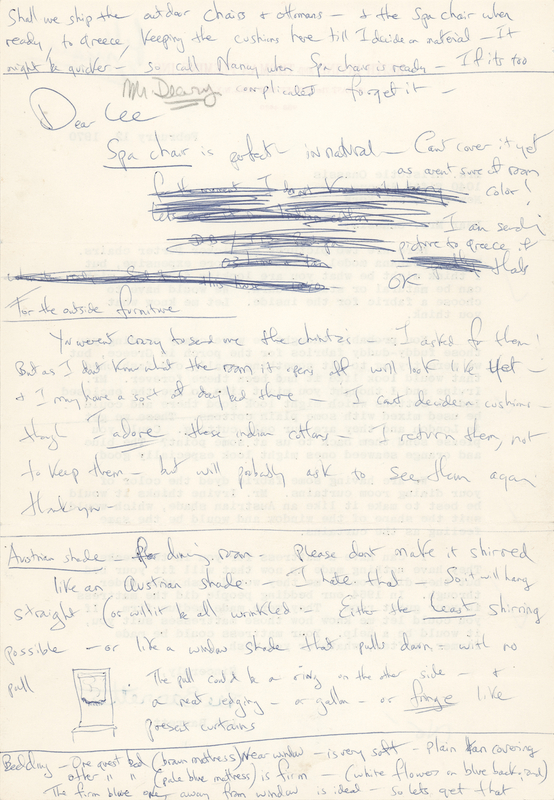 Shall we ship the outdoor chairs + ottomans – + the Spa chair when
ready, to Greece, keeping the cushions here till I decide on material – It
might be quicker – so call Nancy when Spa chair is ready – If its too
complicated forget it –
Dear Lee
Spa chair is perfect – in natural – Cant cover it yet
as arent sure of room
color!
I am sending
picture to Greece if
thats
OK
For the outside furniture
You werent crazy to send me the chintzes – I asked for them!
But as I dont know what the room it opens off will look like yet –
+ I may have a sort of daybed there – I cant decide on cushions –
though I adore these indian cottons – I return them, not
to keep them – but will probably ask to see them again
thank you –
Austrian shade – for dining room – please dont make it shirred
like an Austrian shade – I hate that – So it will hang
straight (or will it be all wrinkled – Either the least shirring
possible – or like a window shade that pulls down – with no
pull
The pull could be a ring on the other side – +
a neat edging – or gallon – or fringe like
present curtains
Bedding – One guest bed (brown mattress) near window – is very soft – plain covering
other " " (pale blue mattress) is firm – (white flowers on blue background)
The firm blue one, away from window is ideal – so lets get that